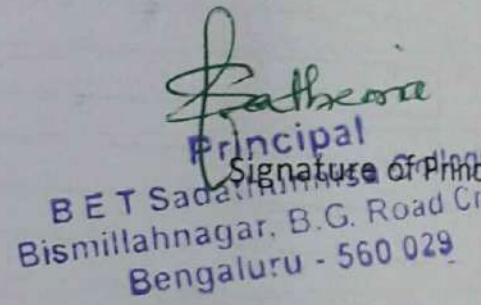 Principal
Signature of Princ
B E T
Bismillahnagar, B.G. Road Cr
Bengaluru - 560 029